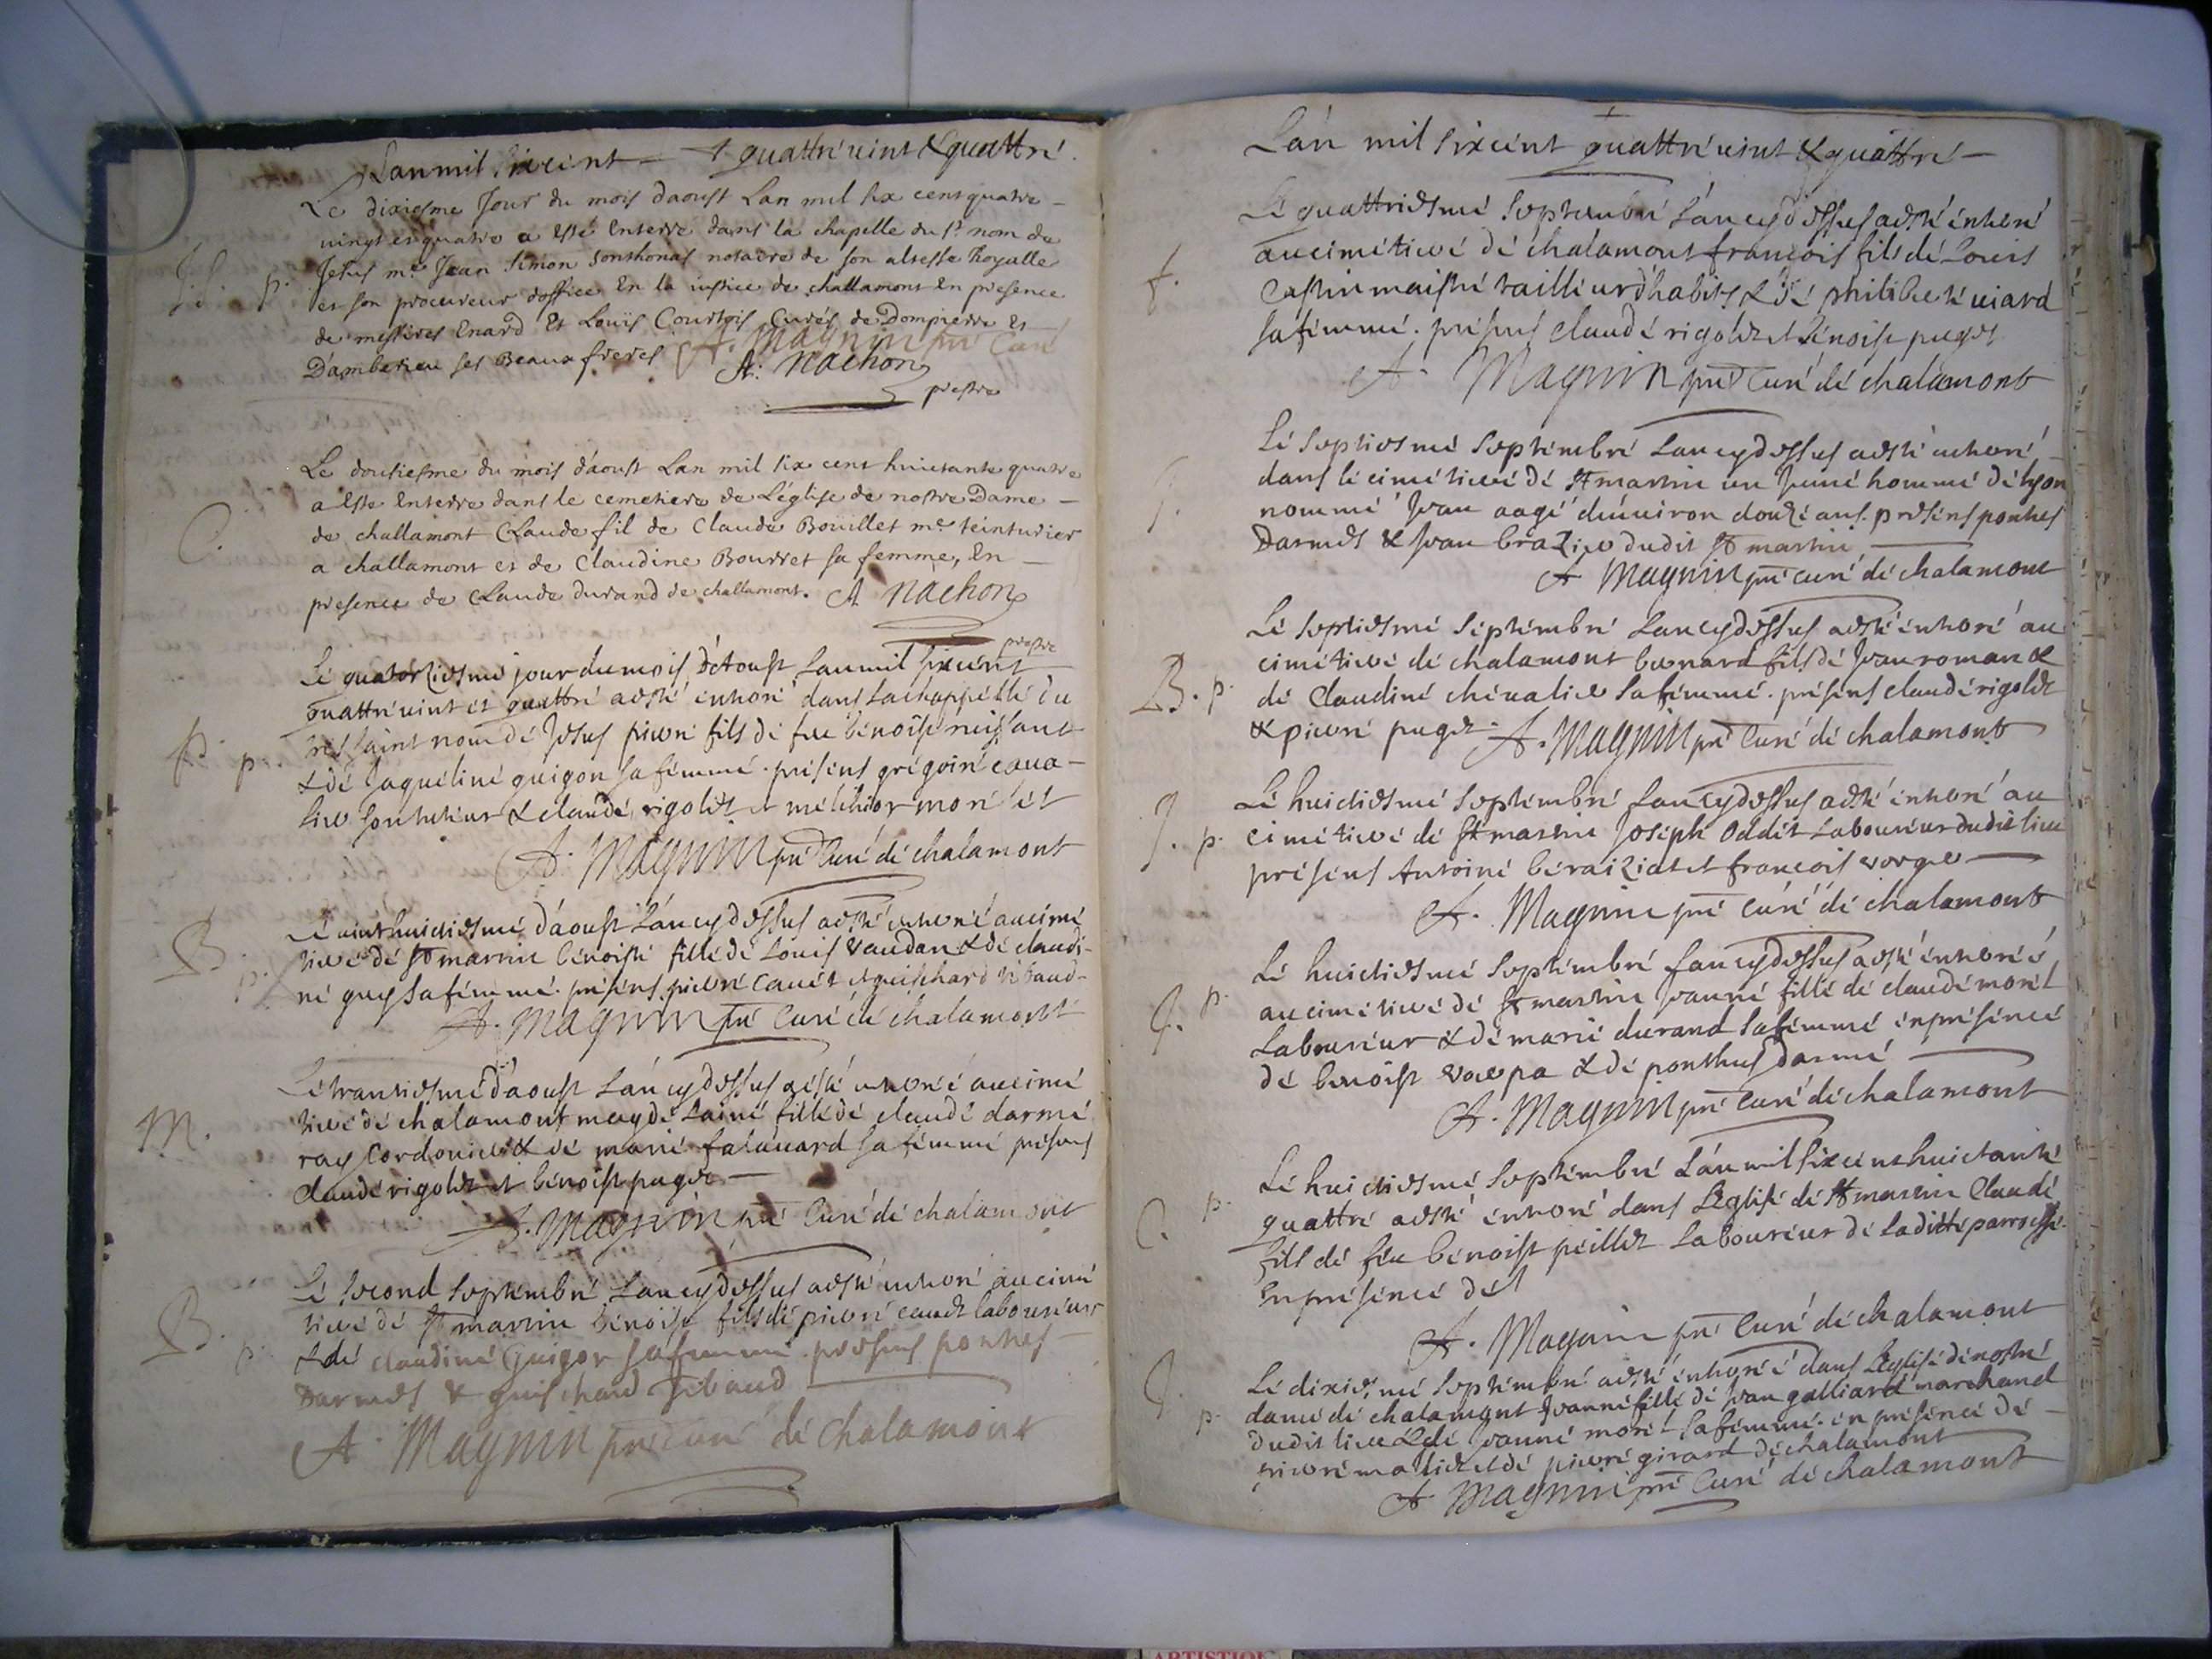 Lan mil sixcent quattre vint & quattre
Le dixiesme Jour du mois daoust Lan mil six cens quatre
vingt et quatre a esté Enterré dans la chapelle du st nom de
J. S. p. Jesus me Jean Simon Sonthonas notaire de son altesse Royalle
et son procureur doffice En la justice de challamont En presence
de messires Enard Et Loüis Courtois Curés de Dompierre Et
Dambérieu ses Beaux freres A. Magnin pre Curé
A. Nachon
prestre
Le dousiesme du mois d'aoust Lan mil six cent huictante quatre
a este Enterre dans le cemetiere de L'église de nostre Dame
C. de challamont Claude fil de Claude Bouillet me teinturier
a challamont et de Claudine Bourret sa femme, En
presence de Claude durand de challamont. A Nachon
prestre
Lé quatorziesmé jour du mois d'Aoust Lan mil sixcént
quattré vint et quattré aesté énterré dans La chappéllé du
trés saint nom dé Jesus pierré fils dé feu bénoist neissant
P. p. & dé Jaquéliné guigon sa fémmé. présens grégoiré cava-
lier & claudé rigolét et mélchior morél ét
A. Magnin pré Curé dé chalamont
Lé vint huictiesmé d'aoust Lán cydessus aesté énterréé au cimé
B. tieré dé St martin bénoisté fillé dé Louis vaudan & dé claudi-
p. né guy sa fémmé. présens pierré Canét et guischard tibaud
A. Magnin pré Curé dé chalamont
Lé trantiesmé d'aoust Lán cydessus aesté énterréé au cimé
M. tieré dé chalamont magdélainé fillé dé claudé darmé
ray Cordonier & dé marié falavard sa fémmé présens
claudé rigolet et bénoist puget
A. Magnin pré Curé dé chalamont
Lé second séptémbré Lan cydessus aesté énterré au cimé
B. tieré dé St martin bénoist fils dé pierré canet laboureur
p. & dé claudiné Guigon sa fémmé. présens ponthus
Darmes & guischard Tibaud
A. Magnin pré curé dé chalamont
Lán mil sixcént quattré vint & quattré
Lé quattriesmé séptémbré Lán cydessus aesté énterré
f. au cimétieré dé chalamont françois fils dé Louis
Castin maistré tailléur d'habits & dé philibérté viard
sa fémmé. présens claudé rigolet et bénoist puget
A. Magnin pré Curé dé chalamont
Lé séptiesmé séptémbré Lan cydessus aesté énterré
dans lé cimétieré dé St martin un Jeuné hommé dé lyon
J. nommé Jean aagé d'énviron douzé ans. présens ponthus
Darmes & Jean brazier dudit St martin
A Magnin pré curé dé chalamont
Lé séptiesmé séptémbré Lan cydessus aesté énterré au
cimétieré dé chalamont bernard fils dé Jean roman &
B. p. dé Claudiné chévalier sa fémmé. présens claudé rigolet
& pierré puget A. Magnin pré Curé dé chalamont
Lé huictiesmé séptémbré Lan cydessus aesté énterré au
J. p. cimétieré dé St martin Joséph Oddét Laboureur dudit lieu
présens Antoiné béraiziat et françois verger
A. Magnin pré Curé dé chalamont
Lé huictiesmé séptémbré Lan cydessus aesté énterréé
J. p. au cimétieré dé St martin Jeanné fillé dé claudé morél
Laboureur & dé marié durand sa fémmé én préséncé
dé bénoist verpa & dé ponthus darmé
A. Magnin pré Curé dé chalamont
Lé huictiesmé séptémbré Lán mil sixcént huictanté
C. p. quattré aesté énterré dans Léglisé dé St martin Claudé
fils dé feu bénoist péillet Laboureur dé Laditté parroissé
én préséncé dé
A. Magnin pré Curé dé chalamont
Lé dixiesmé séptémbré aesté énterréé dans Léglisé dé nostré
J. p. damé dé chalamont Jeanné fillé dé Jean galliard marchand
dudit lieu & dé Jeanné morél sa fémmé. én préséncé dé
pierré et dé pierré girard dé chalamont
A Magnin pré Curé dé chalamont